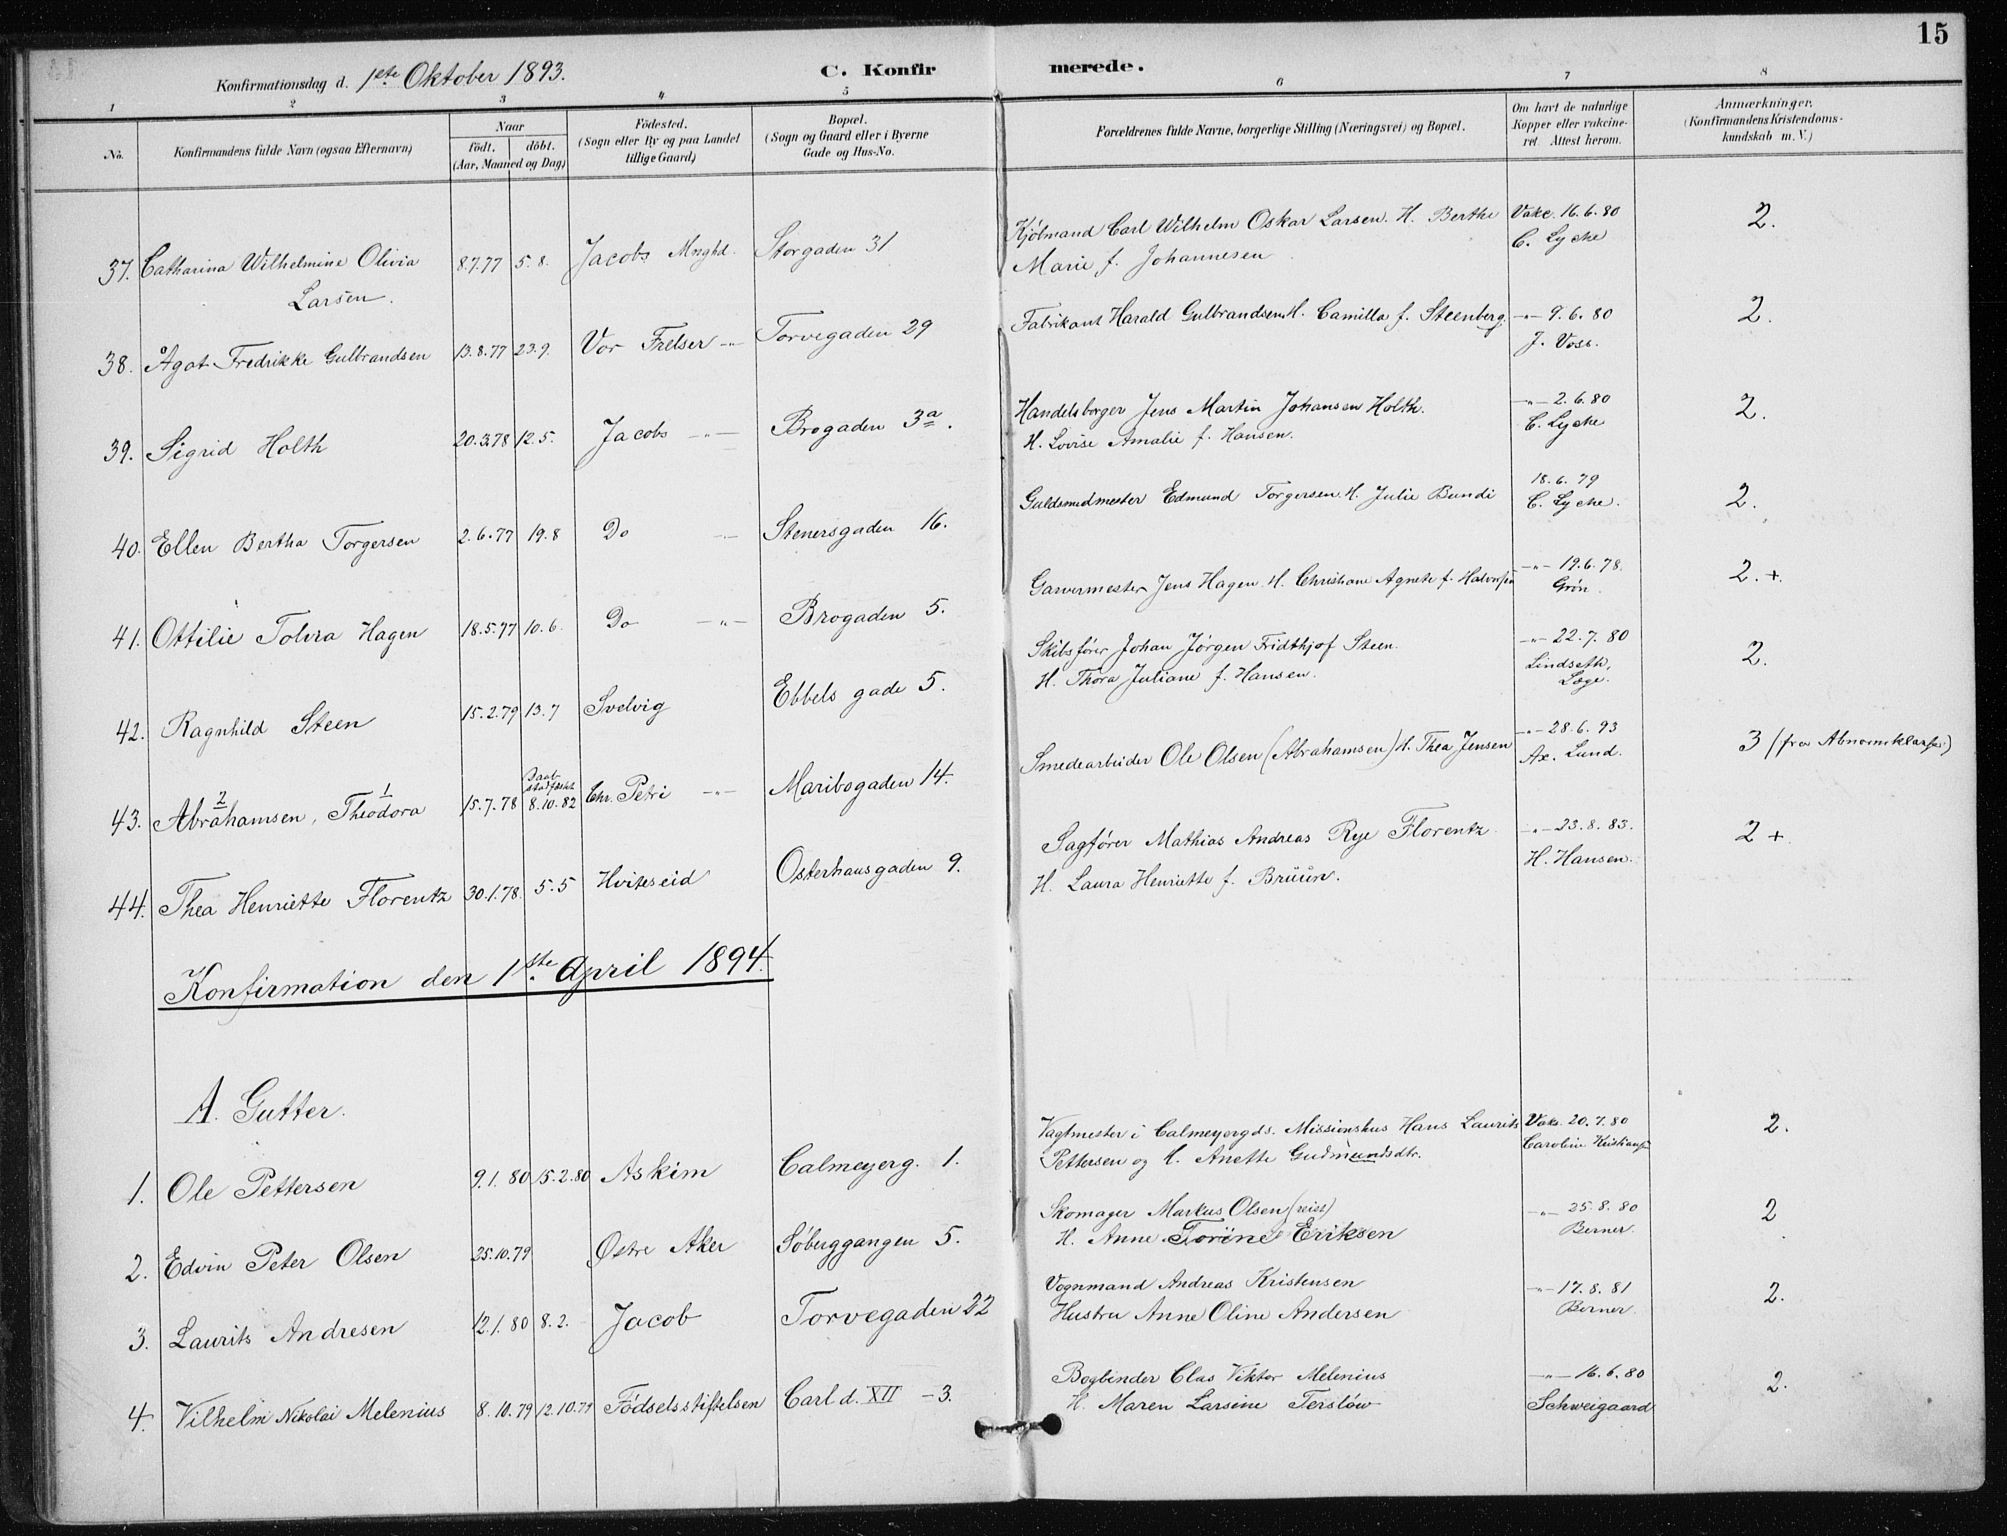 15
Konfirmationsdag d. 1ste Oktober 1893. C. Konfir merede.
1 2 3 4 5 6 7 8
No. Konfirmandens fulde Navn (ogsaa Efternavn)
Naar
født. døbt.
(Aar, Maaned og Dag)
Födested.
(Sogn eller By og paa Landet
tillige Gaard)
Bopæl.
(Sogn og Gaard eller i Byerne
Gade og Hus-No.
Forældrenes fulde Navne, borgerlige Stilling (Næringsvei) og Bopæl.
Om havt de naturlige
Kopper eller vakcine-
ret. Attest herom.
Anmærkninger.
(Konfirmandens Kristendoms-
kundskab m. V.)
37. Catharina Wilhelmine Olivia 8.7.77 5.8. Jacobs Mnghd. Storgaden 31
Larsen.
Kjøbmand Carl Wilhelm Oskar Larsen. H. Berthe Vakc. 16.6.80 2.
Marie f. Johannesen C. Lyche
38. Ågot Fredrikke Gulbrandsen 13.8.77 23.9. Vor Frelser -"- Torvegaden 29
Fabrikant Harald Gulbrandsen. H. Camilla f. Steenberg. -"- 9.6.80 2.
J. Voss.
39. Sigrid Holth 20.3.78 12.5. Jacobs -"- Brogaden 3a.
Handelsborger Jens Martin Johansen Holth. -"- 2.6.80 2.
H. Lovise Amalie f. Hansen. C. Lyche
40. Ellen Bertha Torgersen 2.6.77 19.8 Do -"- Stenersgaden 16.
Guldsmedmester Edmund Torgersen. H. Julie Bundi 18.6.79 2.
C. Lyche.
41. Ottilie Tolvra Hagen 18.5.77 10.6. Do -"- Brogaden 5.
Garvermester Jens Hagen. H. Christiane Agnete f. Halvorsen -"- 19.6.78. 2.+.
Grøn.
42. Ragnhild Steen 15.2.79 13.7 Svelvig Ebbels gade 5.
Skibsfører Johan Jørgen Fridthjof Steen. -"- 22.7.80 2.
H. Thora Juliane f. Hansen. Lindseth,
Læge.
43. Abrahamsen, 2 Theodora 1 15.7.78 Daab stadfæstet 8.10.82 Chr. Petri -"- Maribogaden 14.
Smedearbeider Ole Olsen (Abrahamsen) H. Thea Jensen -"- 28.6.93 3 (fra Abnormklassen)
Ax. Lund.
44. Thea Henriette Florentz 30.1.78. 5.5 Hviteseid Osterhausgaden 9.
Sagfører Mathias Andreas Rye Florentz -"- 23.8.83. 2 +
H. Laura Henriette f. Brüün. H. Hansen.
Konfirmation den 1ste April 1894.
A. Gutter.
1. Ole Pettersen 9.1.80 15.2.80 Askim Calmeyerg. 1.
Vagtmester i Calmeyergds. Missionshus Hans Laurits Vakc. 20.7.80 2.
Pettersen og H. Anette Gudmundsdtr. Caroline Kristiansen
2. Edvin Peter Olsen 25.10.79 Østre Aker Søbuggangen 5.
Skomager Markus Olsen (reist) -"- 25.8.80 2
H. Anne Torine Eriksen Berner.
3. Laurits Andresen 12.1.80 8.2. Jacob Torvegaden 22
Vognmand Andreas Kristensen -"- 17.8.81 2.
Hustru Anne Oline Andersen Berner.
4. Vilhelm Nikolai Melenius 8.10.79 12.10.79 Födselsstiftelsen Carl d. XII -3.
Bogbinder Clas Viktor Melenius -"- 16.6.80 2.
H. Maren Larsine Terslöw Schweigaard